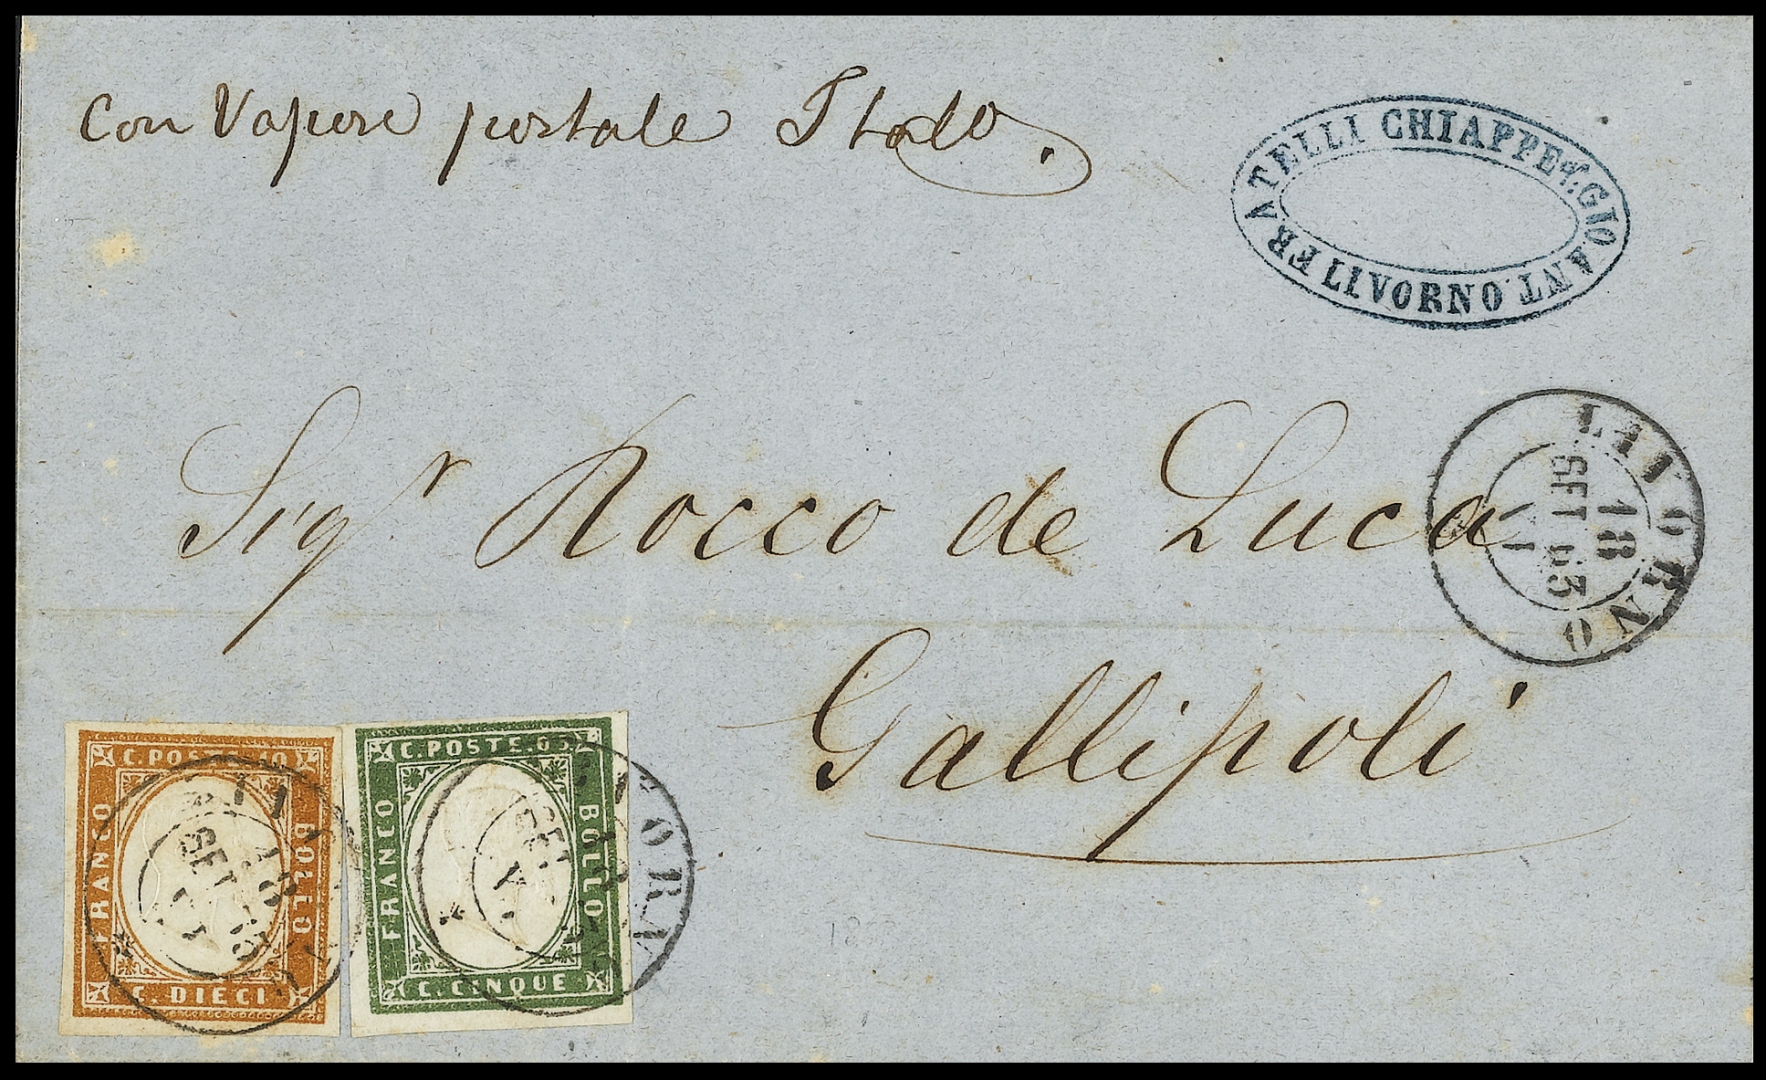 Con Vapore postale Italo.
FRATELLI CHIAPPE q.GIO.ANT.
LIVORNO
Sigr Rocco de Luca
LIVORNO
18
SET 63
VI
Gallipoli
C. POSTE. 10
FRANCO
BOLLO
C. DIECI
C. POSTE. 05
FRANCO
BOLLO
C. CINQUE